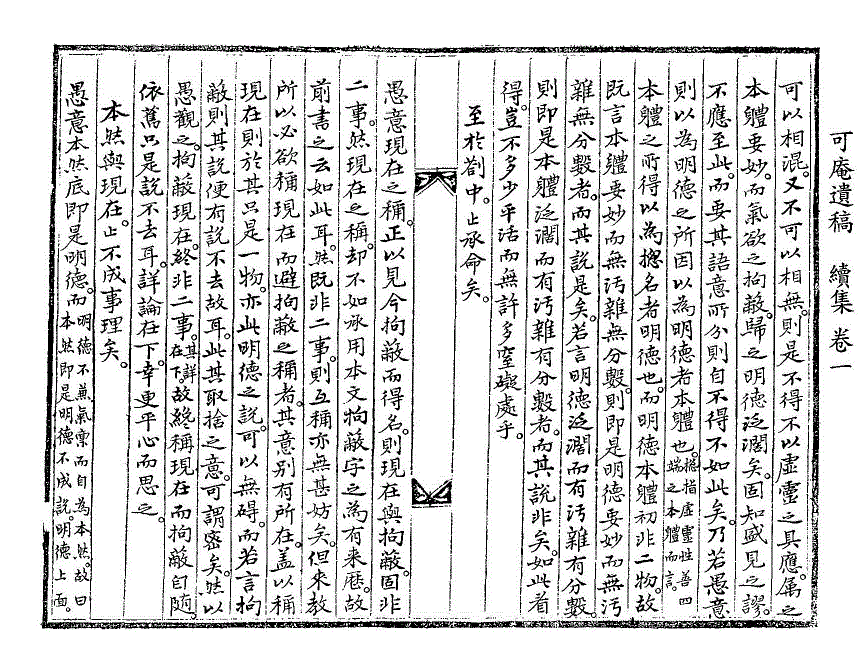 可庵遺稿　續集　卷一
可以相混。又不可以相無。則是不得不以虛靈之具應。屬之
本軆要妙。而氣欲之拘蔽。歸之明德泛濶矣。固知盛見之謬。
不應至此。而要其語意所分則自不得不如此矣。乃若愚意
則以為明德之所因以為明德者本軆也。摠指虛靈性善四
端之本軆而言。
本軆之所得以為摠名者明德也。而明德本軆初非二物。故
既言本軆要妙而無汚雜無分數。則即是明德要妙而無汚
雜無分數者。而其說是矣。若言明德泛濶而有汚雜有分數。
則即是本軆泛濶而有汚雜有分數者。而其說非矣。如此看
得。豈不多少平活而無許多窒礙處乎。
至於劄中。止承命矣。
愚意現在之稱。正以見今拘蔽而得名。則現在與拘蔽固非
二事。然現在之稱。却不如承用本文拘蔽字之為有来歷。故
前書之云如此耳。然既非二事。則互稱亦無甚妨矣。但来敎
所以必欲稱現在而避拘蔽之稱者。其意别有所在。盖以稱
現在則於其只是一物。亦此明德之說。可以無碍。而若言拘
蔽則其說便有說不去故耳。此其取捨之意。可謂密矣。然以
愚觀之。拘蔽現在。終非二事。其詳
在下。故終稱現在而拘蔽自隨。
依舊只是說不去耳。詳論在下。幸更平心而思之。
本然與現在。止不成事理矣。
愚意本然底即是明德。而明德不兼氣而自為本然。故曰
本然即是明德不成說。明德上面。